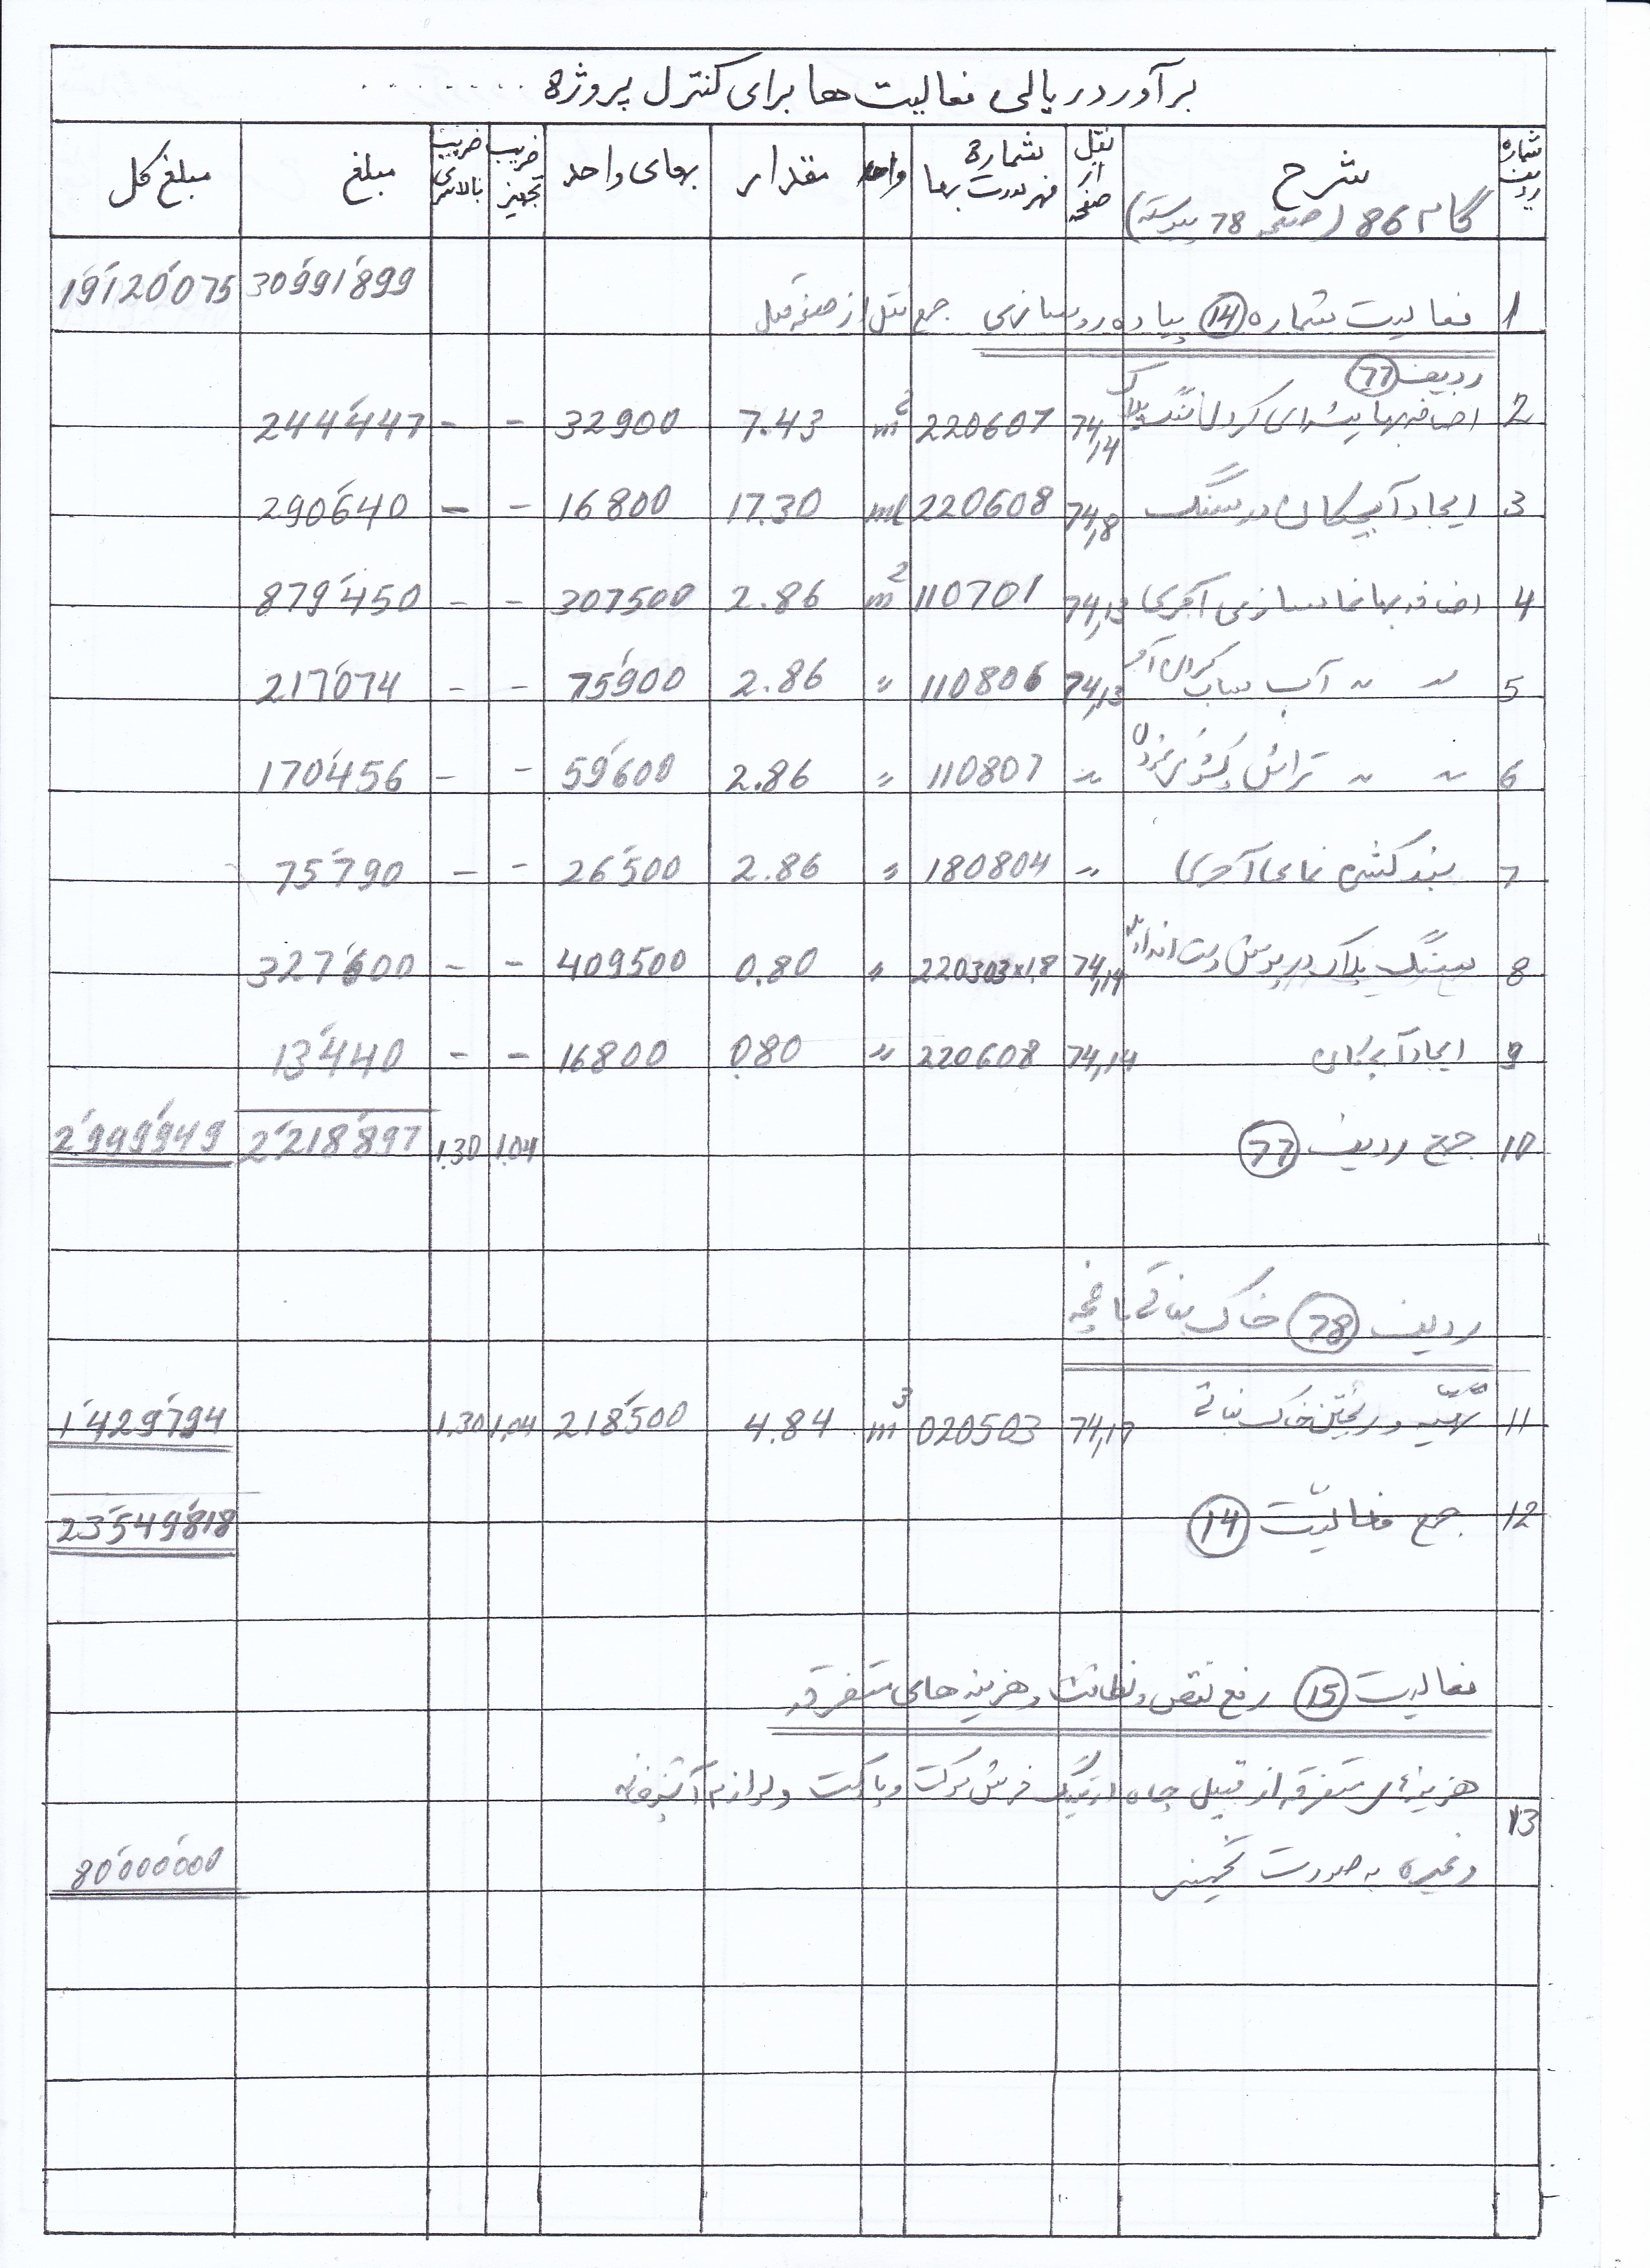 برآورد ریالی فعالیت ها برای کنترل پروژه ........
شماره ردیف شرح نقل از صفحه شماره فهرست بها واحد مقدار بهای واحد ضریب تجهیز ضریب بالاسری مبلغ مبلغ کل
گام 86 (صفحه 78 پیوسته)
1 فعالیت شماره 14 پیاده رو سازی جمع نقل از صفحه قبل 30'991'899 19'120'075
ردیف 77
2 اضافه بها برای کردل سنگ پلاک 74,14 220607 m2 7.43 32900 - - 244'447
3 ایجاد آبچکان در سنگ 74,8 220608 ml 17.30 16800 - - 290'640
4 اضافه بها نماسازی آجری 74,13 110701 m2 2.86 307500 - - 879'450
5 " " آب ساب کردن آجر 74,13 110806 " 2.86 75'900 - - 217'074
6 " " تراش 110807 " 2.86 59'600 - - 170'456
7 بند کشی نمای آجری " 180804 " 2.86 26'500 - - 75'790
8 سنگ پلاک در پوش دست انداز 74,14 220303x1.8 " 0.80 409500 - - 327'600
9 ایجاد آبچکان 74,14 220608 " 0.80 16800 - - 13'440
10 جمع ردیف 77 1.04 1.30 2'218'897 2'999'949
ردیف 78 خاک نباتی باغچه
11 تهیه و ریختن خاک نباتی 74,17 020503 m3 4.84 218'500 1.04 1.30 1'429'794
12 جمع فعالیت 14 23'549'818
فعالیت 15 رفع نقص و نظافت و هزینه های متفرقه
13 هزینه های متفرقه از قبیل چاه ارتینگ فرش موکت و پارکت و لوازم آشپزخانه
و غیره به صورت تخمینی 80'000'000